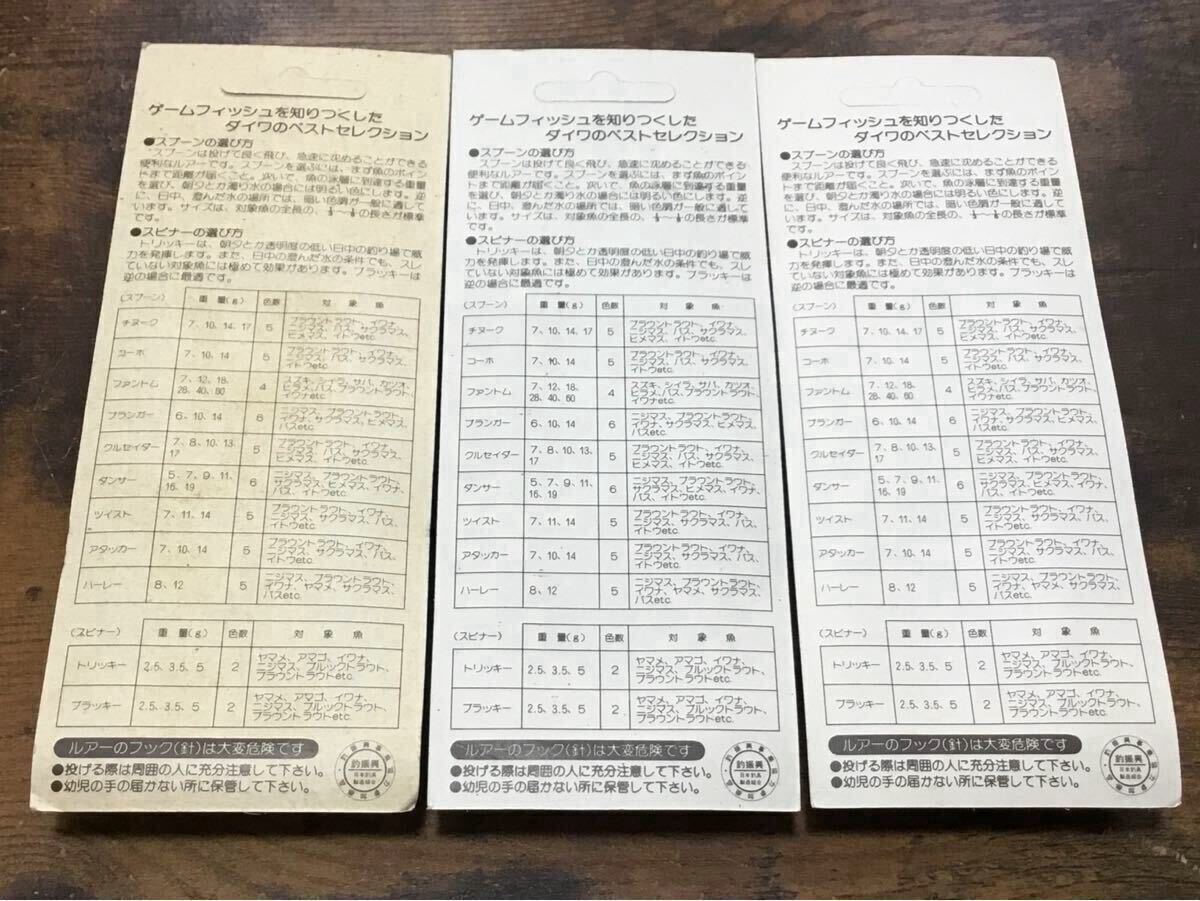 ゲームフィッシュを知りつくした
ダイワのベストセレクション
●スプーンの選び方
スプーンは投げて良く飛び、急速に沈めることができる
便利なルアーです。スプーンを選ぶには、まず魚のポイン
トまで距離が届くこと。次いで、魚の泳層に到達する重量
を選び、朝夕とか濁り水の場合には明るい色にします。逆
に、日中、澄んだ水の場所では、暗い色調が一般に適して
います。サイズは、対象魚の全長の、の長さが標準
です。
●スピナーの選び方
トリッキーは、朝夕とか透明度の低い日中の釣り場で威
力を発揮します。また、日中の澄んだ水の条件でも、スレ
ていない対象魚には極めて効果があります。ブラッキーは
逆の場合に最適です。
(スプーン) 重量(g) 色数 対象魚
チヌーク 7、10、14、17 5 ブラウントラウト、イワナ、
ニジマス、バス、サクラマス、
ヒメマス、イトウetc.
コーホ 7、10、14 5 ブラウントラウト、イワナ、
ニジマス、バス、サクラマス、
イトウetc.
ファントム 7、12、18、 4 スズキ、シイラ、サバ、カツオ、
28、40、60 ヒラメ、バス、ブラウントラウト、
イワナetc.
プランガー 6、10、14 6 ニジマス、ブラウントラウト、
イワナ、サクラマス、ヒメマス、
バスetc.
クルセイダー 7、8、10、13、 5 ブラウントラウト、イワナ、
17 ニジマス、バス、サクラマス、
ヒメマス、イトウetc.
ダンサー 5、7、9、11、 6 ニジマス、ブラウントラウト、
16、19 サクラマス、ヒメマス、イワナ、
バス、イトウetc.
ツイスト 7、11、14 5 ブラウントラウト、イワナ、
ニジマス、サクラマス、バス、
イトウetc.
アタッカー 7、10、14 5 ブラウントラウト、イワナ、
ニジマス、サクラマス、バス、
イトウetc.
ハーレー 8、12 5 ニジマス、ブラウントラウト、
イワナ、ヤマメ、サクラマス、
バスetc.
(スピナー) 重量(g) 色数 対象魚
トリッキー 2.5、3.5、5 2 ヤマメ、アマゴ、イワナ、
ニジマス、ブルックトラウト、
ブラウントラウトetc.
ブラッキー 2.5、3.5、5 2 ヤマメ、アマゴ、イワナ、
ニジマス、ブルックトラウト、
ブラウントラウトetc.
ルアーのフック(針)は大変危険です
●投げる際は周囲の人に充分注意して下さい。
●幼児の手の届かない所に保管して下さい。
釣振興
日本釣具
製造組合
ゲームフィッシュを知りつくした
ダイワのベストセレクション
●スプーンの選び方
スプーンは投げて良く飛び、急速に沈めることができる
便利なルアーです。スプーンを選ぶには、まず魚のポイン
トまで距離が届くこと。次いで、魚の泳層に到達する重量
を選び、朝夕とか濁り水の場合には明るい色にします。逆
に、日中、澄んだ水の場所では、暗い色調が一般に適して
います。サイズは、対象魚の全長の、の長さが標準
です。
●スピナーの選び方
トリッキーは、朝夕とか透明度の低い日中の釣り場で威
力を発揮します。また、日中の澄んだ水の条件でも、スレ
ていない対象魚には極めて効果があります。ブラッキーは
逆の場合に最適です。
(スプーン) 重量(g) 色数 対象魚
チヌーク 7、10、14、17 5 ブラウントラウト、イワナ、
ニジマス、バス、サクラマス、
ヒメマス、イトウetc.
コーホ 7、10、14 5 ブラウントラウト、イワナ、
ニジマス、バス、サクラマス、
イトウetc.
ファントム 7、12、18、 4 スズキ、シイラ、サバ、カツオ、
28、40、60 ヒラメ、バス、ブラウントラウト、
イワナetc.
プランガー 6、10、14 6 ニジマス、ブラウントラウト、
イワナ、サクラマス、ヒメマス、
バスetc.
クルセイダー 7、8、10、13、 5 ブラウントラウト、イワナ、
17 ニジマス、バス、サクラマス、
ヒメマス、イトウetc.
ダンサー 5、7、9、11、 6 ニジマス、ブラウントラウト、
16、19 サクラマス、ヒメマス、イワナ、
バス、イトウetc.
ツイスト 7、11、14 5 ブラウントラウト、イワナ、
ニジマス、サクラマス、バス、
イトウetc.
アタッカー 7、10、14 5 ブラウントラウト、イワナ、
ニジマス、サクラマス、バス、
イトウetc.
ハーレー 8、12 5 ニジマス、ブラウントラウト、
イワナ、ヤマメ、サクラマス、
バスetc.
(スピナー) 重量(g) 色数 対象魚
トリッキー 2.5、3.5、5 2 ヤマメ、アマゴ、イワナ、
ニジマス、ブルックトラウト、
ブラウントラウトetc.
ブラッキー 2.5、3.5、5 2 ヤマメ、アマゴ、イワナ、
ニジマス、ブルックトラウト、
ブラウントラウトetc.
ルアーのフック(針)は大変危険です
●投げる際は周囲の人に充分注意して下さい。
●幼児の手の届かない所に保管して下さい。
釣振興
日本釣具
製造組合
ゲームフィッシュを知りつくした
ダイワのベストセレクション
●スプーンの選び方
スプーンは投げて良く飛び、急速に沈めることができる
便利なルアーです。スプーンを選ぶには、まず魚のポイン
トまで距離が届くこと。次いで、魚の泳層に到達する重量
を選び、朝夕とか濁り水の場合には明るい色にします。逆
に、日中、澄んだ水の場所では、暗い色調が一般に適して
います。サイズは、対象魚の全長の、の長さが標準
です。
●スピナーの選び方
トリッキーは、朝夕とか透明度の低い日中の釣り場で威
力を発揮します。また、日中の澄んだ水の条件でも、スレ
ていない対象魚には極めて効果があります。ブラッキーは
逆の場合に最適です。
(スプーン) 重量(g) 色数 対象魚
チヌーク 7、10、14、17 5 ブラウントラウト、イワナ、
ニジマス、バス、サクラマス、
ヒメマス、イトウetc.
コーホ 7、10、14 5 ブラウントラウト、イワナ、
ニジマス、バス、サクラマス、
イトウetc.
ファントム 7、12、18、 4 スズキ、シイラ、サバ、カツオ、
28、40、60 ヒラメ、バス、ブラウントラウト、
イワナetc.
プランガー 6、10、14 6 ニジマス、ブラウントラウト、
イワナ、サクラマス、ヒメマス、
バスetc.
クルセイダー 7、8、10、13、 5 ブラウントラウト、イワナ、
17 ニジマス、バス、サクラマス、
ヒメマス、イトウetc.
ダンサー 5、7、9、11、 6 ニジマス、ブラウントラウト、
16、19 サクラマス、ヒメマス、イワナ、
バス、イトウetc.
ツイスト 7、11、14 5 ブラウントラウト、イワナ、
ニジマス、サクラマス、バス、
イトウetc.
アタッカー 7、10、14 5 ブラウントラウト、イワナ、
ニジマス、サクラマス、バス、
イトウetc.
ハーレー 8、12 5 ニジマス、ブラウントラウト、
イワナ、ヤマメ、サクラマス、
バスetc.
(スピナー) 重量(g) 色数 対象魚
トリッキー 2.5、3.5、5 2 ヤマメ、アマゴ、イワナ、
ニジマス、ブルックトラウト、
ブラウントラウトetc.
ブラッキー 2.5、3.5、5 2 ヤマメ、アマゴ、イワナ、
ニジマス、ブルックトラウト、
ブラウントラウトetc.
ルアーのフック(針)は大変危険です
●投げる際は周囲の人に充分注意して下さい。
●幼児の手の届かない所に保管して下さい。
釣振興
日本釣具
製造組合